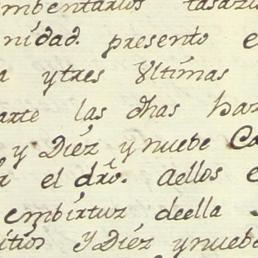 mbentarios tasazi
nidad. presento e
a ytres Ultimas
arte las dhas haz
y Diéz y nuebe Ca
r el dro. aellos e
embirtuz deella
itios Y Diéz ynuebe